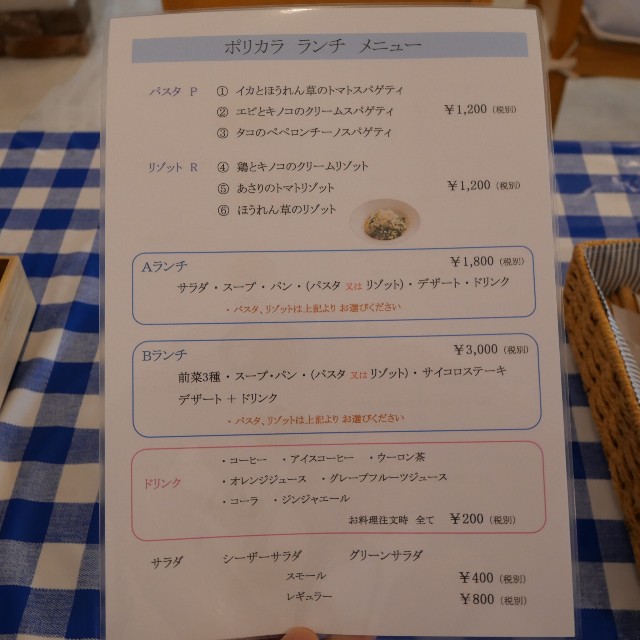 ポリカラ ランチ メニュー
パスタ P ① イカとほうれん草のトマトスパゲティ
② エビとキノコのクリームスパゲティ ￥1,200（税別）
③ タコのペペロンチーノスパゲティ
リゾット R ④ 鶏とキノコのクリームリゾット
⑤ あさりのトマトリゾット ￥1,200（税別）
⑥ ほうれん草のリゾット
Aランチ ￥1,800（税別）
サラダ・スープ・パン・（パスタ 又は リゾット）・デザート・ドリンク
・パスタ、リゾットは上記より お選びください
Bランチ ￥3,000（税別）
前菜3種・スープ・パン・（パスタ 又は リゾット）・サイコロステーキ
デザート ＋ ドリンク
・パスタ、リゾットは上記より お選びください
・コーヒー ・アイスコーヒー ・ウーロン茶
ドリンク ・オレンジジュース ・グレープフルーツジュース
・コーラ ・ジンジャエール
お料理注文時 全て ￥200（税別）
サラダ シーザーサラダ グリーンサラダ
スモール ￥400（税別）
レギュラー ￥800（税別）